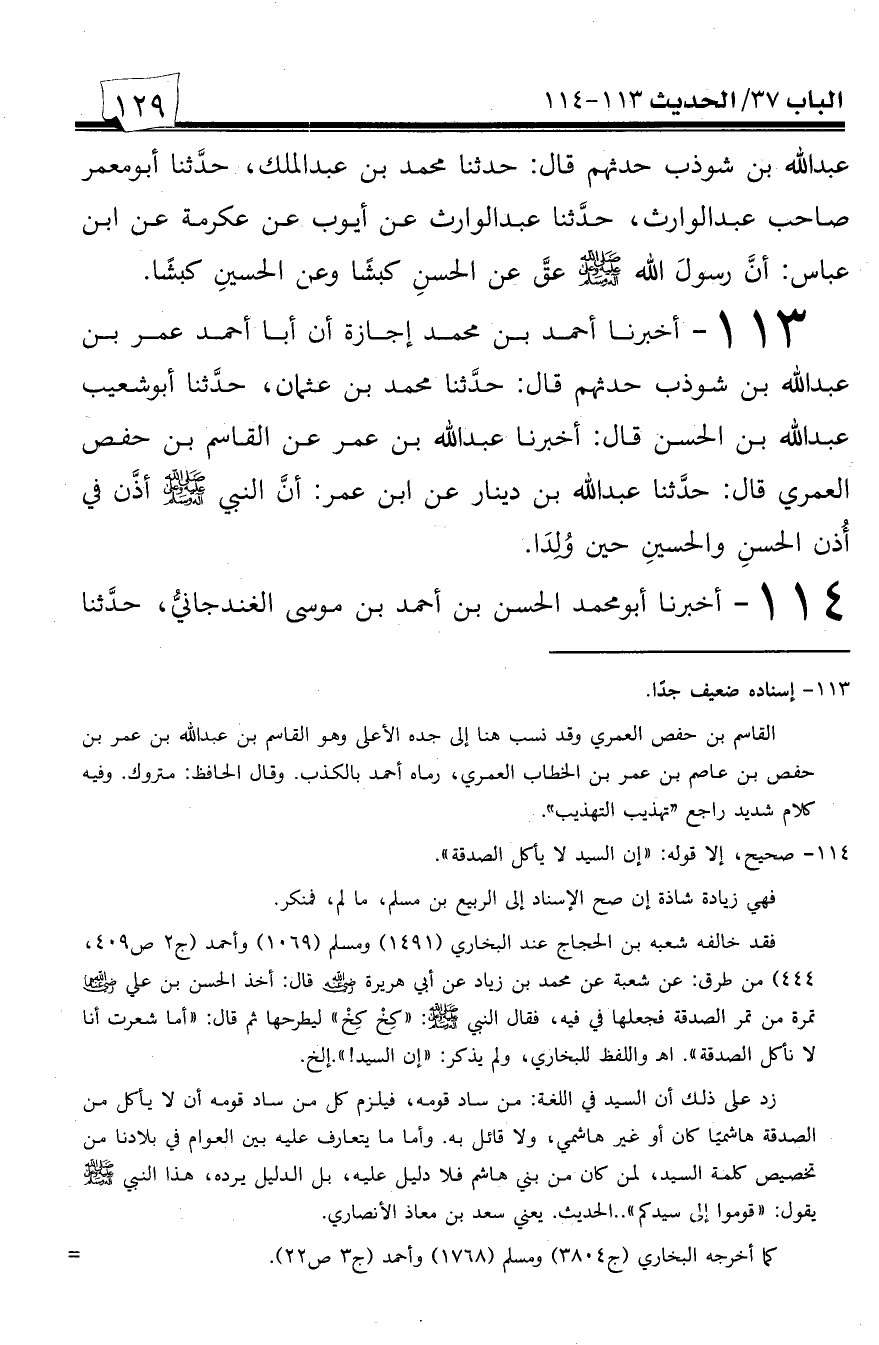 الباب ٣٧/ الحديث ١١٣-١١٤
١٢٩
عبدالله بن شوذب حدثهم قال: حدثنا محمد بن عبدالملك، حدَّثنا أبومعمر
صاحب عبدالوارث، حدَّثنا عبدالوارث عن أيوب عن عكرمة عن ابن
عباس: أنَّ رسولَ الله ﷺ عقَّ عن الحسنِ كبشًا وعن الحسينِ كبشًا.
١١٣ - أخبرنا أحمد بن محمد إجازة أن أبا أحمد عمر بن
عبدالله بن شوذب حدثهم قال: حدَّثنا محمد بن عثمان، حدَّثنا أبوشعيب
عبدالله بن الحسن قال: أخبرنا عبدالله بن عمر عن القاسم بن حفص
العمري قال: حدَّثنا عبدالله بن دينار عن ابن عمر: أنَّ النبي ﷺ أذَّن في
أُذن الحسنِ والحسينِ حين وُلِدَا.
١١٤ - أخبرنا أبومحمد الحسن بن أحمد بن موسى الغندجانيُّ، حدَّثنا
١١٣- إسناده ضعيف جدًا.
القاسم بن حفص العمري وقد نسب هنا إلى جده الأعلى وهو القاسم بن عبدالله بن عمر بن
حفص بن عاصم بن عمر بن الخطاب العمري، رماه أحمد بالكذب. وقال الحافظ: متروك. وفيه
كلام شديد راجع «تهذيب التهذيب».
١١٤- صحيح، إلا قوله: «إن السيد لا يأكل الصدقة».
فهي زيادة شاذة إن صح الإسناد إلى الربيع بن مسلم، ما لم، فمنكر.
فقد خالفه شعبه بن الحجاج عند البخاري (١٤٩١) ومسلم (١٠٦٩) وأحمد (ج٢ ص٤٠٩،
٤٤٤) من طرق: عن شعبة عن محمد بن زياد عن أبي هريرة رضي الله عنه قال: أخذ الحسن بن علي رضي الله عنهما
تمرة من تمر الصدقة فجعلها في فيه، فقال النبي ﷺ: «كِخْ كِخْ» ليطرحها ثم قال: «أما شعرت أنا
لا نأكل الصدقة». اهـ واللفظ للبخاري، ولم يذكر: «إن السيد!».إلخ.
زد على ذلك أن السيد في اللغة: من ساد قومه، فيلزم كل من ساد قومه أن لا يأكل من
الصدقة هاشميًا كان أو غير هاشمي، ولا قائل به. وأما ما يتعارف عليه بين العوام في بلادنا من
تخصيص كلمة السيد، لمن كان من بني هاشم فلا دليل عليه، بل الدليل يرده، هذا النبي ﷺ
يقول: «قوموا إلى سيدكم»..الحديث. يعني سعد بن معاذ الأنصاري.
كما أخرجه البخاري (ج٣٨٠٤) ومسلم (١٧٦٨) وأحمد (ج٣ ص٢٢).
=